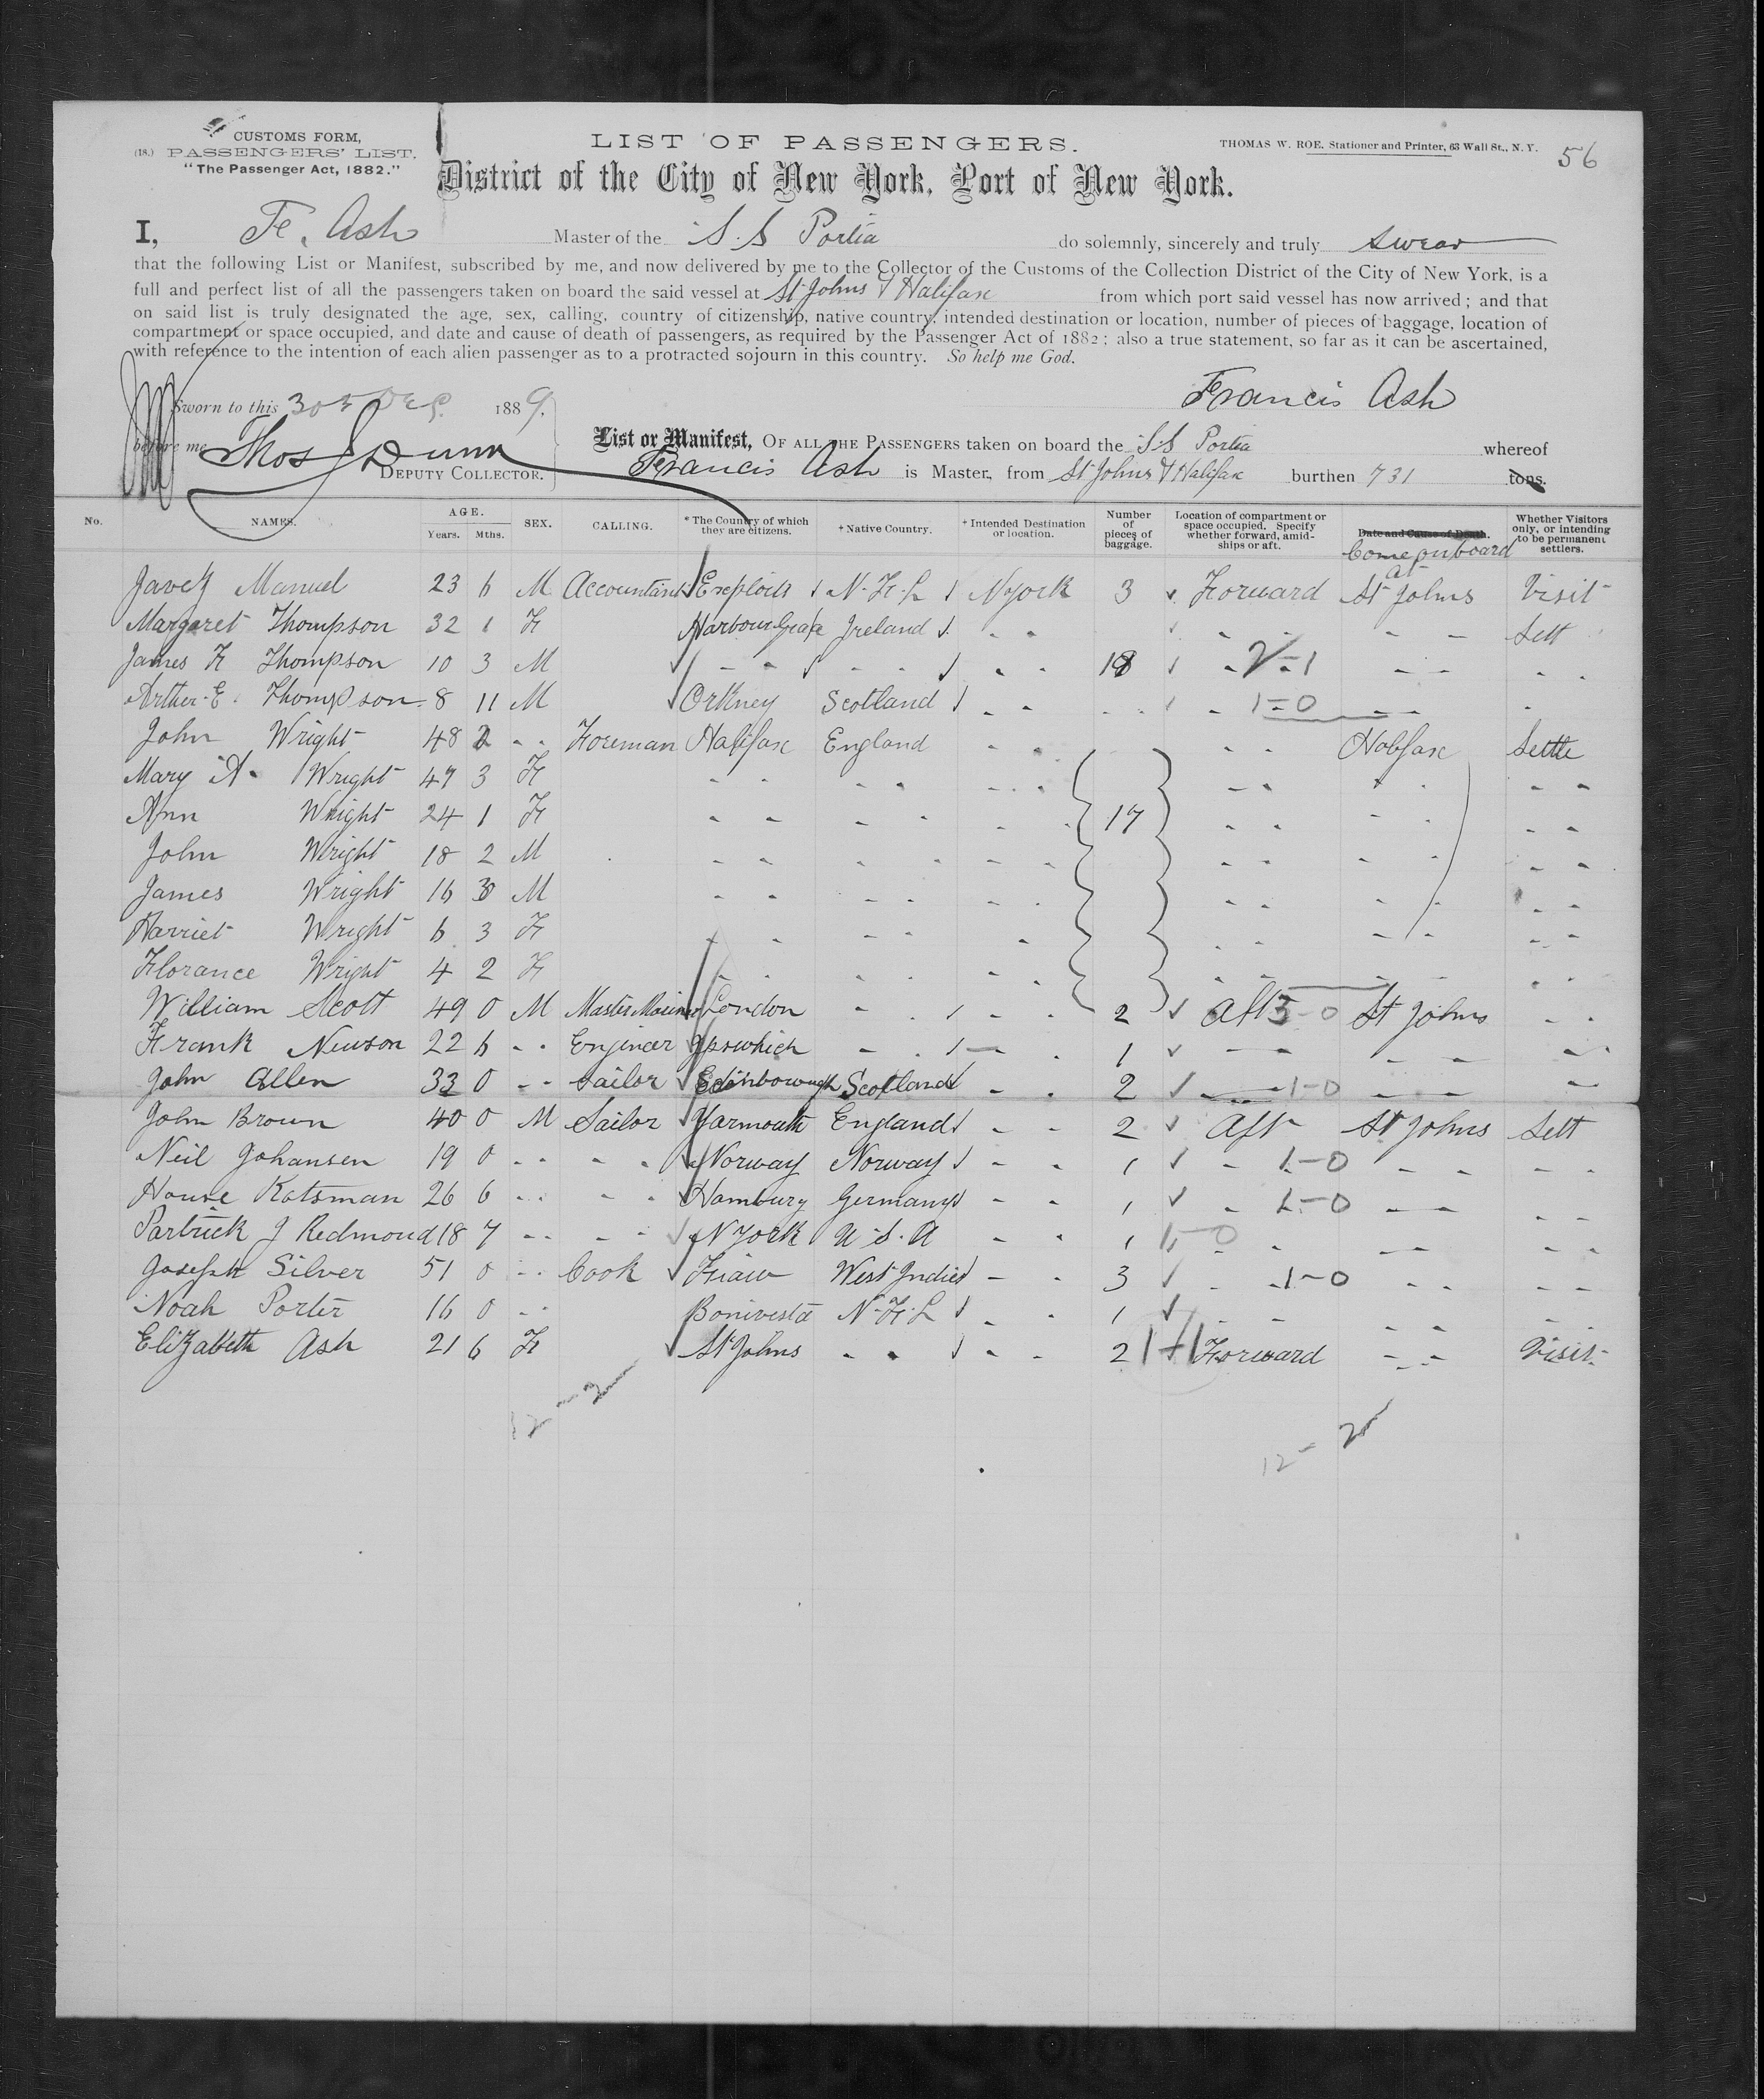 CUSTOMS FORM, LIST OF PASSENGERS. THOMAS W. ROE. Stationer and Printer, 63 Wall St., N. Y. 56
(18.) PASSENGERS' LIST.
"The Passenger Act, 1882." District of the City of New York, Port of New York.
I, Fr. Ash Master of the S.S Portia do solemnly, sincerely and truly swear
that the following List or Manifest, subscribed by me, and now delivered by me to the Collector of the Customs of the Collection District of the City of New York, is a
full and perfect list of all the passengers taken on board the said vessel at St Johns & Halifax from which port said vessel has now arrived; and that
on said list is truly designated the age, sex, calling, country of citizenship, native country, intended destination or location, number of pieces of baggage, location of
compartment or space occupied, and date and cause of death of passengers, as required by the Passenger Act of 1882; also a true statement, so far as it can be ascertained,
with reference to the intention of each alien passenger as to a protracted sojourn in this country. So help me God.
Francis Ash
Sworn to this 30 Dec. 1889,
before me Thos J Dunn
DEPUTY COLLECTOR.
List or Manifest, OF ALL THE PASSENGERS taken on board the S.S Portia whereof
Francis Ash is Master, from St Johns & Halifax burthen 731 tons.
No. NAMES. AGE. Years. Mths. SEX. CALLING. * The Country of which they are citizens. + Native Country. + Intended Destination or location. Number of pieces of baggage. Location of compartment or space occupied. Specify whether forward, amidships or aft. Date and Cause of Death. Come on board at Whether Visitors only, or intending to be permanent settlers.
Javez Manuel 23 6 M Accountant Exploits N.F.L N York 3 Forward St Johns Visit
Margaret Thompson 32 1 F Harbour Grace Ireland - - - - - - Sett
James F Thompson 10 3 M - - - - - - 18 - - 1 - - - -
Arther E. Thompson 8 11 M Orkney Scotland - - - - - 1-0 - - -
John Wright 48 2 - - Foreman Halifax England - - - - Halifax Settle
Mary A. Wright 47 3 F - - - - - - - - - - - -
Ann Wright 24 1 F - - - - - - 17 - - - - - -
John Wright 18 2 M - - - - - - - - - - - -
James Wright 16 3 M - - - - - - - - - - - -
Harriet Wright 6 3 F - - - - - - - - - - -
Florance Wright 4 2 F - - - - - - - - - - - -
William Scott 49 0 M Master Mariner London - - - - 2 Aft 3-0 St Johns - -
Frank Newson 22 6 - - Enjineer Ipswhich - - - - 1 - - - - - -
John Allen 33 0 - - Sailor Edinborough Scotland - - 2 - 1-0 - - -
John Brown 40 0 M Sailor Yarmouth England - - 2 Aft St Johns Sett
Neil Johansen 19 0 - - - - Norway Norway - - 1 - 1-0 - - - -
House Katsman 26 6 - - - - Hamburg Germany - - 1 - 1-0 - - - -
Partrick J Redmond 18 7 - - - - N York U.S.A - - 1 1-0 - - - - - -
Joseph Silver 51 0 - - Cook West Indies - - 3 - 1-0 - - - -
Noah Porter 16 0 - - Bonivesta N.F.L - - 1 - - - - - -
Elizabeth Ash 21 6 F St Johns - - - - 2 1-1 Forward - - Visit
12 - 2
12 - 2